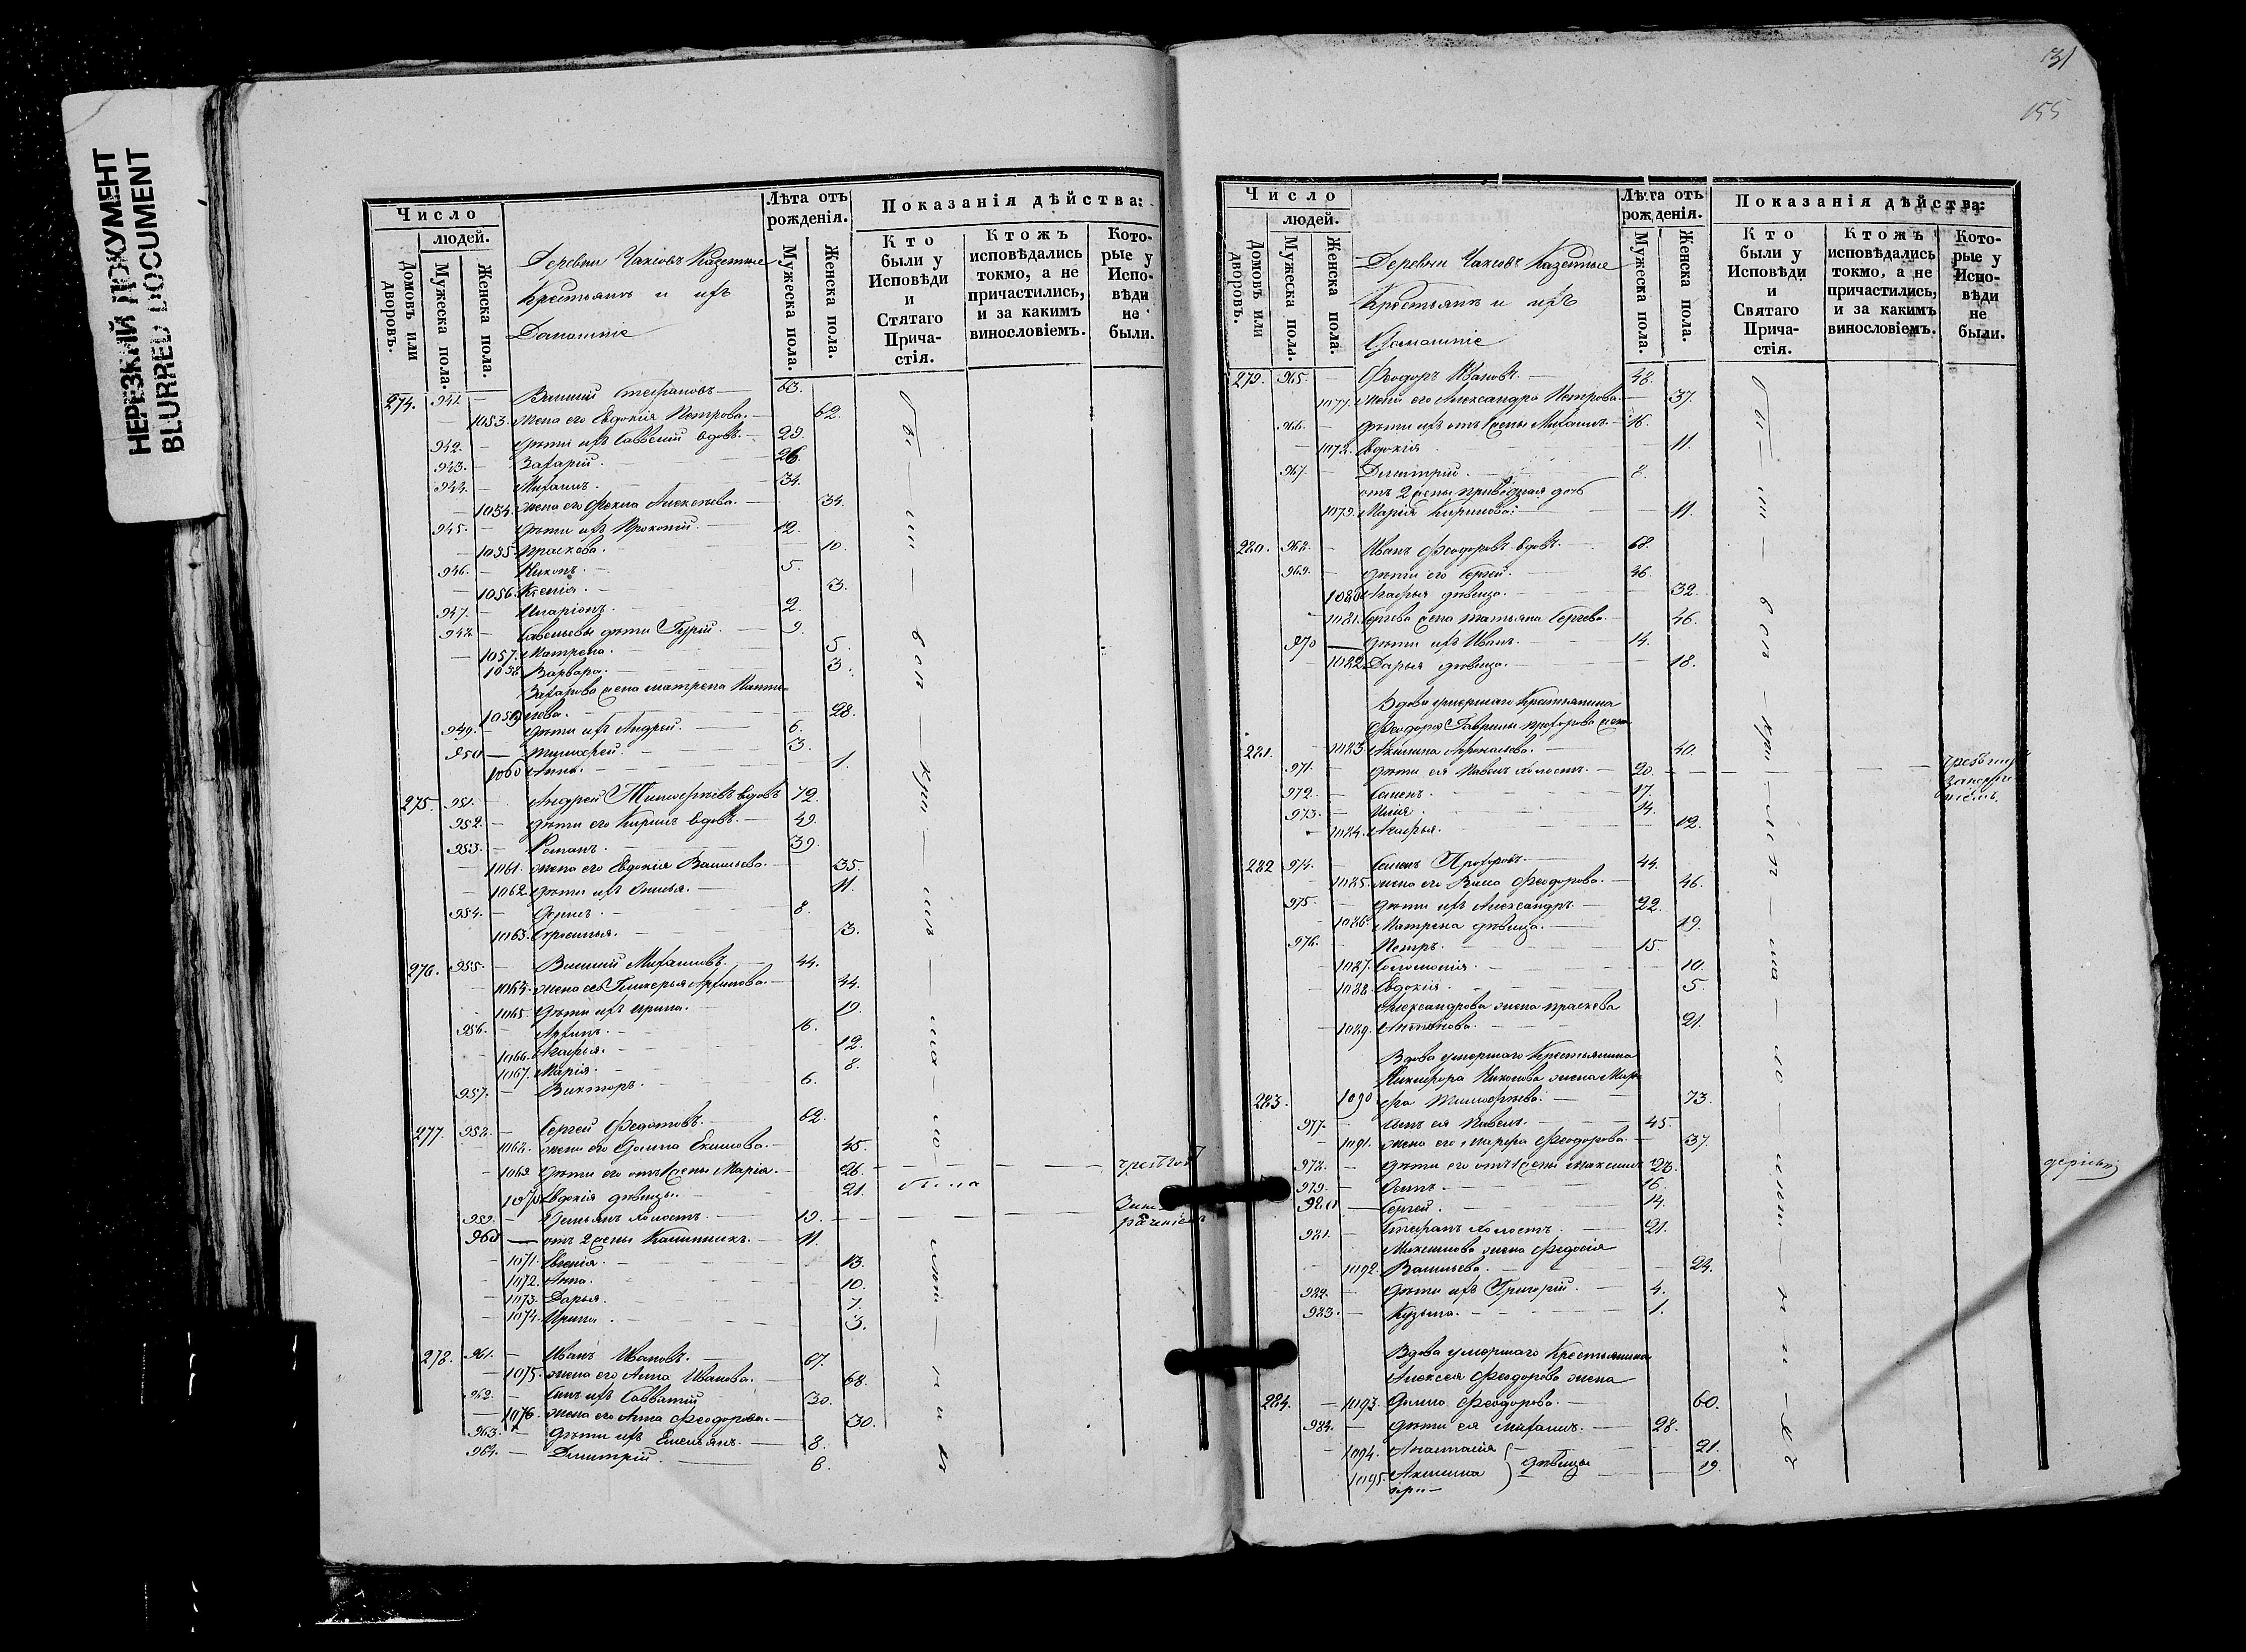 НЕРЕЗКИЙ ДОКУМЕНТ
BLURRED DOCUMENT
Число
людей.
Домовъ или дворовъ.
Мужеска пола.
Женска пола.
Деревни Чаксовъ Казенные
Крестьянъ и ихъ
Домашніе
Лѣта отъ рожденія.
Мужеска пола.
Женска пола.
Показанія дѣйства:
Кто были у Исповѣди и Стятаго Причастія.
Ктожъ исповѣдались токмо, а не причастились, и за какимъ винословіемъ.
Которые у Исповѣди не были.
274. 941. — 63.
1053. жена его Евдокія Петрова. — 62.
942. — дѣти ихъ Савватій вдовъ. — 29.
943. — Захарій. — 26.
944. — Михаилъ. — 34.
1054. жена его Фекла Алексѣева. — 34.
945. — дѣти ихъ Прокопій. — 12.
1055. Праскева. — 10.
946. — Никонъ. — 5.
1056. Ксенія. — 3.
947. — Иларіонъ. — 2.
948. — Савельевы дѣти Гурій. — 9.
1057. Матрена. — 5.
1058. Варвара. — 3.
Захарова жена матрена Панте=
1059. лева. — 28.
949. — дѣти ихъ Андрей. — 6.
950 — Тимофей. — 3.
1060 Анна. — 1.
275. 951. — Андрей Тимофеевъ вдовъ 72.
952. — дѣти его Кирилъ вдовъ. — 49.
953. — Романъ. — 39.
1061. жена его Евдокія Васильева. — 35.
1062. дѣти ихъ — 11.
954. — 8.
1063. Ефросинья. — 3.
276. 955. — Василій Михаиловъ. — 44.
1064. жена его Гликерья Архипова. — 44.
1065. дѣти ихъ Ирина. — 19.
956. — Архипъ. — 16.
1066. Агафья. — 12.
1067. Марія. — 8.
957. — Викторъ. — 6.
277. 958. — Сергей Федотовъ. — 62.
1068. жена его Домна Екимова. — 45.
1069 дѣти его отъ 1 жены Марія. — 26.
1070 Евдокія дѣвицы. — 21. была
959. — Демьянъ холостъ. — 19.
960 — отъ 2 жены Калинникъ. — 11.
1071. Евгенія. — 13.
1072. Анна. — 10.
1073. Дарья. — 7.
1074. Ирина. — 3.
278. 961. — Иванъ Ивановъ. — 67.
1075. жена его Анна Иванова. — 68.
962. — сынъ ихъ Савватій 30.
1076. жена его Анна Феодорова. — 30.
963. — дѣти ихъ Емельянъ. — 8.
964. — Димитрій. — 6.
131
155
Число
людей.
Домовъ или дворовъ.
Мужеска пола.
Женска пола.
Деревни Чаксовъ Казенные
Крестьянъ и ихъ
Домашніе
Лѣта отъ рожденія.
Мужеска пола.
Женска пола.
Показанія дѣйства:
Кто были у Исповѣди и Святаго Причастія.
Ктожъ исповѣдались токмо, а не причастились, и за какимъ винословіемъ.
Которые у Исповѣди не были.
279. 965. — Феодоръ Ивановъ. — 48.
1077. жена его Александра Петрова. — 37.
966. — дѣти ихъ отъ 1 жены Михаилъ. — 16.
1078. Евдокія — 11.
967. — Димитрій. — 8.
отъ 2 жены приводная дочь
1079. Марія Кирилова. — 11.
280. 968. — Иванъ Феодоровъ вдовъ. — 68.
969. — дѣти его Сергей. — 46.
1080 Агафья дѣвица. — 32.
1081. Сергева жена татьяна Сергева. — 46.
970 — дѣти ихъ Иванъ. — 14.
1082. Дарья дѣвица. — 18.
Вдова умершаго Крестьянина
Феодора Гаврилы прохорова жена
281. 1083. Акилина Афанасьева. — 40.
971. дѣти ея Павелъ холостъ. — 20.
972. — Семенъ. — 17.
973. — Илія. — 14.
1084. Агафья. — 12.
282 974. — Семенъ Прохоровъ. — 44.
1085. жена его Васса Феодорова. — 46.
975. — дѣти ихъ Александръ. — 22.
1086. Матрена дѣвица. — 19.
976. — Петръ. — 15.
1087. Соломонія. — 10.
1088. Евдокія. — 5.
Александрова жена праскева
1089. Антонова. — 21.
Вдова умершаго Крестьянина
Никифора Николаева жена Мар=
283. 1090 фа Тимофѣева. — 73.
977. — сынъ ея Павелъ. — 45.
1091. жена его марфа Феодорова. — 37.
978. — дѣти его отъ 1 жены максимъ 23.
979. — Осипъ. — 16.
980 — Сергей. — 14.
981. — Стефанъ холостъ. — 21.
Максимова жена Федосія
1092. Васильева. — 24.
982. — дѣти ихъ Григорій. — 4.
983. — Кузьма. — 1.
Вдова умершаго Крестьянина
Алексея Феодорова жена
284. — 1093. Домна Феодорова. — 60.
984. — дѣти ея михаилъ. — 28.
1094. Анастасія — 21.
1095. Акилина } дѣвицы — 19.